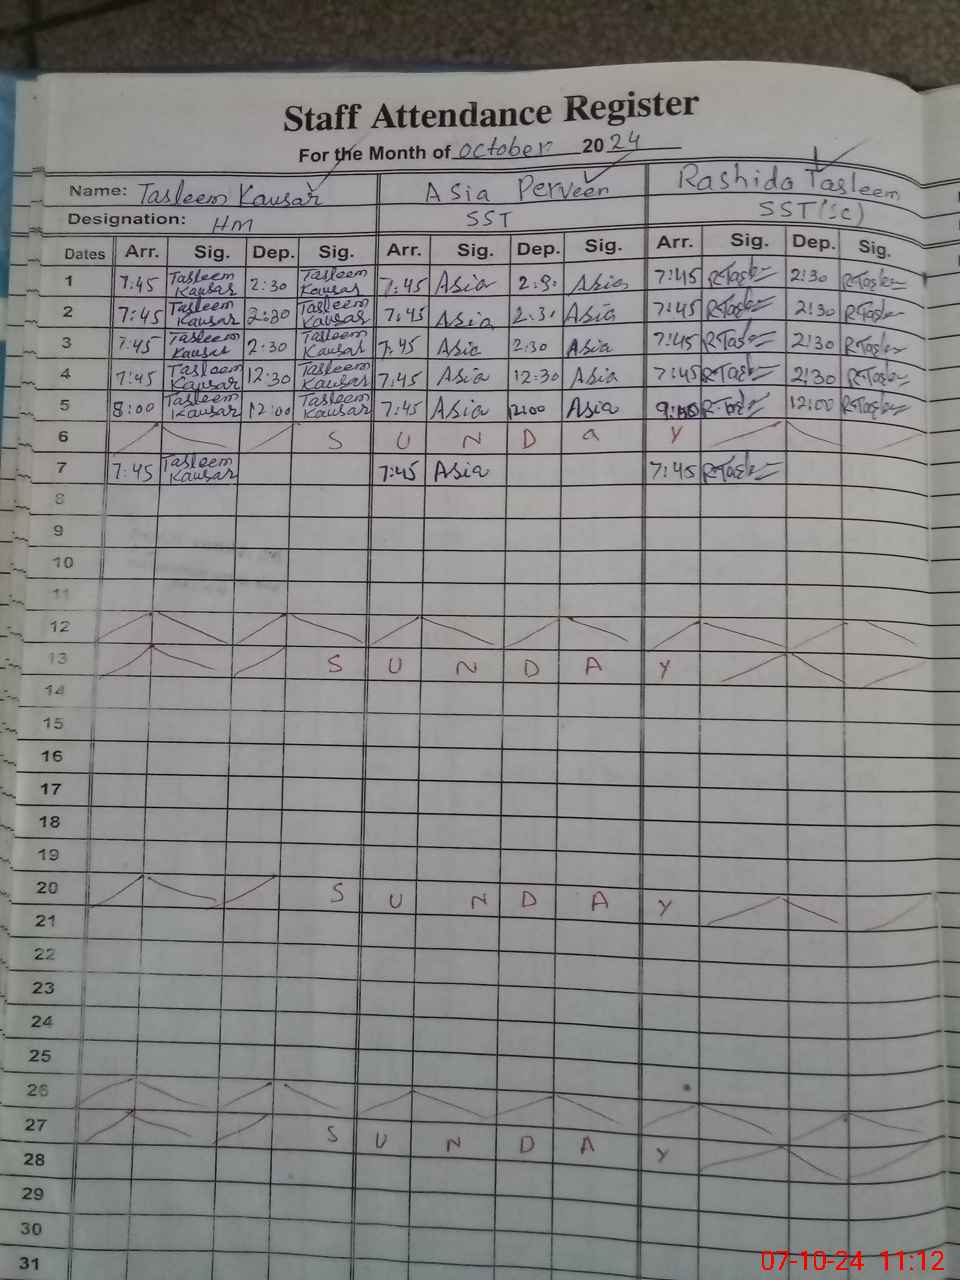 Staff Attendance Register
For the Month of October 2024
Name: Tasleem Kausar Asia Perveen Rashida Tasleem
Designation: HM SST SST(Sc)
Dates Arr. Sig. Dep. Sig. Arr. Sig. Dep. Sig. Arr. Sig. Dep. Sig.
1 7:45 Tasleem Kausar 2:30 Tasleem Kausar 7:45 Asia 2:30 Asia 7:45 R-Tasle 2:30 R-Tasle
2 7:45 Tasleem Kausar 2:30 Tasleem Kausar 7:45 Asia 2:30 Asia 7:45 R-Tasle 2:30 R-Tasle
3 7:45 Tasleem Kausar 2:30 Tasleem Kausar 7:45 Asia 2:30 Asia 7:45 R-Tasle 2:30 R-Tasle
4 7:45 Tasleem Kausar 12:30 Tasleem Kausar 7:45 Asia 12:30 Asia 7:45 R-Tasle 2:30 R-Tasle
5 8:00 Tasleem Kausar 12:00 Tasleem Kausar 7:45 Asia 12:00 Asia R-Tasle 12:00 R-Tasle
6 S U N D a y
7 7:45 Tasleem Kausar 7:45 Asia 7:45 R-Tasle
8
9
10
11
12
13 S U N D A y
14
15
16
17
18
19
20 S U N D A y
21
22
23
24
25
26
27 S U N D A y
28
29
30
31
07-10-24 11:12